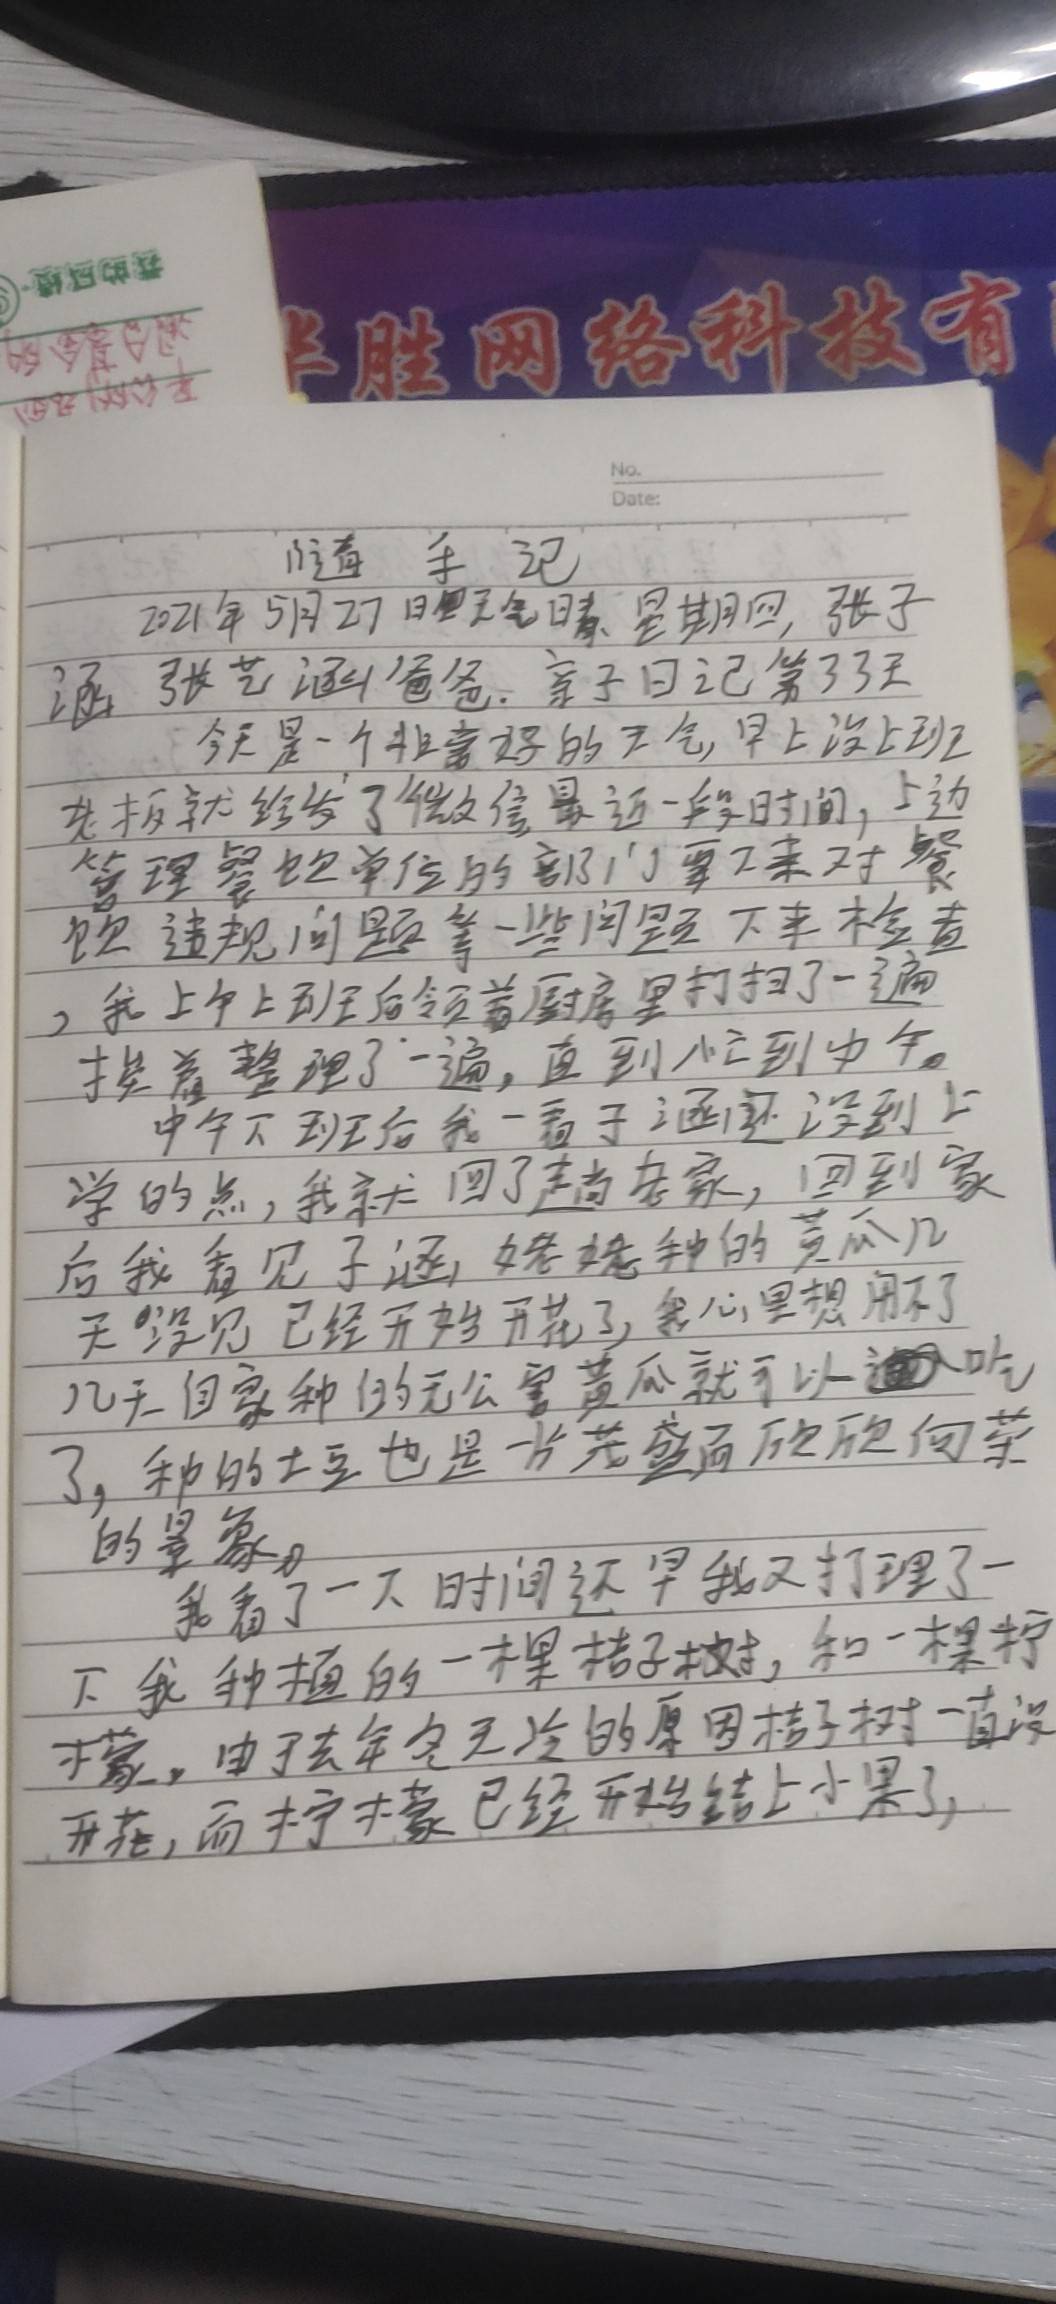 我的成绩
华胜网络科技有
No.
Date:
随手记
2021年5月27日 天气晴、星期四，张子
涵，张艺涵爸爸．亲子日记第33天
今天是一个非常好的天气，早上没上班
老板就给发了微信最近一段时间，上边
管理餐饮单位的部门要下来对餐
饮违规问题等一些问题下来检查
，我上午上班后领着厨房里打扫了一遍
挨着整理了一遍，直到忙到中午。
中午下班后我一看子涵还没到上
学的点，我就回了趟老家，回到家
后我看见子涵，姥姥种的黄瓜几
天没见已经开始开花了，我心里想用不了
几天自家种的无公害黄瓜就可以吃
了，种的土豆也是一片茂盛而欣欣向荣
的景象。
我看了一下时间还早我又打理了一
下我种植的一棵桔子树，和一棵柠
檬。由于去年冬天冷的原因桔子树一直没
开花，而柠檬已经开始结上小果了，